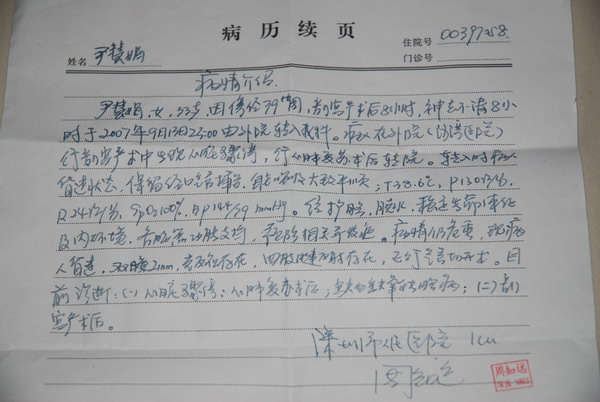 病历续页
住院号 00397258
姓名 尹慧娟 门诊号
病情介绍
尹慧娟,女,33岁,因停经39+周,剖宫产术后8小时,神志不清8小
时于2007年9月13日23:00由外院转入我科。病人在外院(
行剖宫产术中出现心脏骤停,行心肺复苏术后转院。转入时病人
昏迷状态,保留经口气管插管,自主呼吸;T38.6℃,P130次/分,
R24次/分,SpO2 100%,BP144/59mmHg。经护脑,脱水,稳定生命体征
及内环境,各脏器功能支持,预防相关并发症。病情仍危重,现病
人昏迷,双瞳2mm,存在,四肢存在,已行气管切开术。目
前诊断:(一)心脏骤停;心肺复苏术后;缺血缺氧性脑病;(二)剖
宫产术后。
深圳市人民医院 ICU
周知远